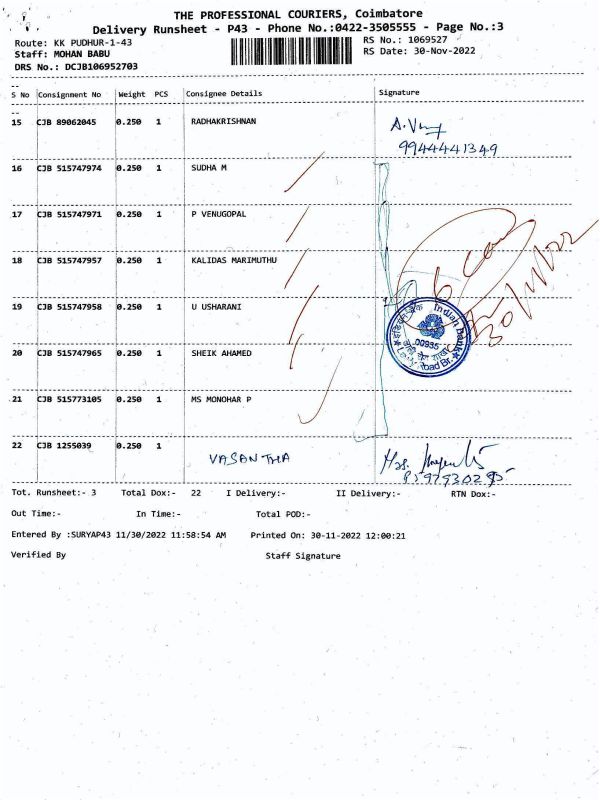 THE PROFESSIONAL COURIERS, Coimbatore
Delivery Runsheet - P43 - Phone No.:0422-3505555 - Page No.:3
Route: KK PUDHUR-1-43 RS No.: 1069527
Staff: MOHAN BABU RS Date: 30-Nov-2022
DRS No.: DCJB106952703
S No Consignment No Weight PCS Consignee Details Signature
15 CJB 89062045 0.250 1 RADHAKRISHNAN
9944441349
16 CJB 515747974 0.250 1 SUDHA M
17 CJB 515747971 0.250 1 P VENUGOPAL
18 CJB 515747957 0.250 1 KALIDAS MARIMUTHU
19 CJB 515747958 0.250 1 U USHARANI
Indian Bank
00935
Road Br.
30/11/22
20 CJB 515747965 0.250 1 SHEIK AHAMED
21 CJB 515773105 0.250 1 MS MONOHAR P
22 CJB 1255039 0.250 1 VASANTHA
Tot. Runsheet:- 3 Total Dox:- 22 I Delivery:- II Delivery:- RTN Dox:-
Out Time:- In Time:- Total POD:-
Entered By :SURYAP43 11/30/2022 11:58:54 AM Printed On: 30-11-2022 12:00:21
Verified By Staff Signature